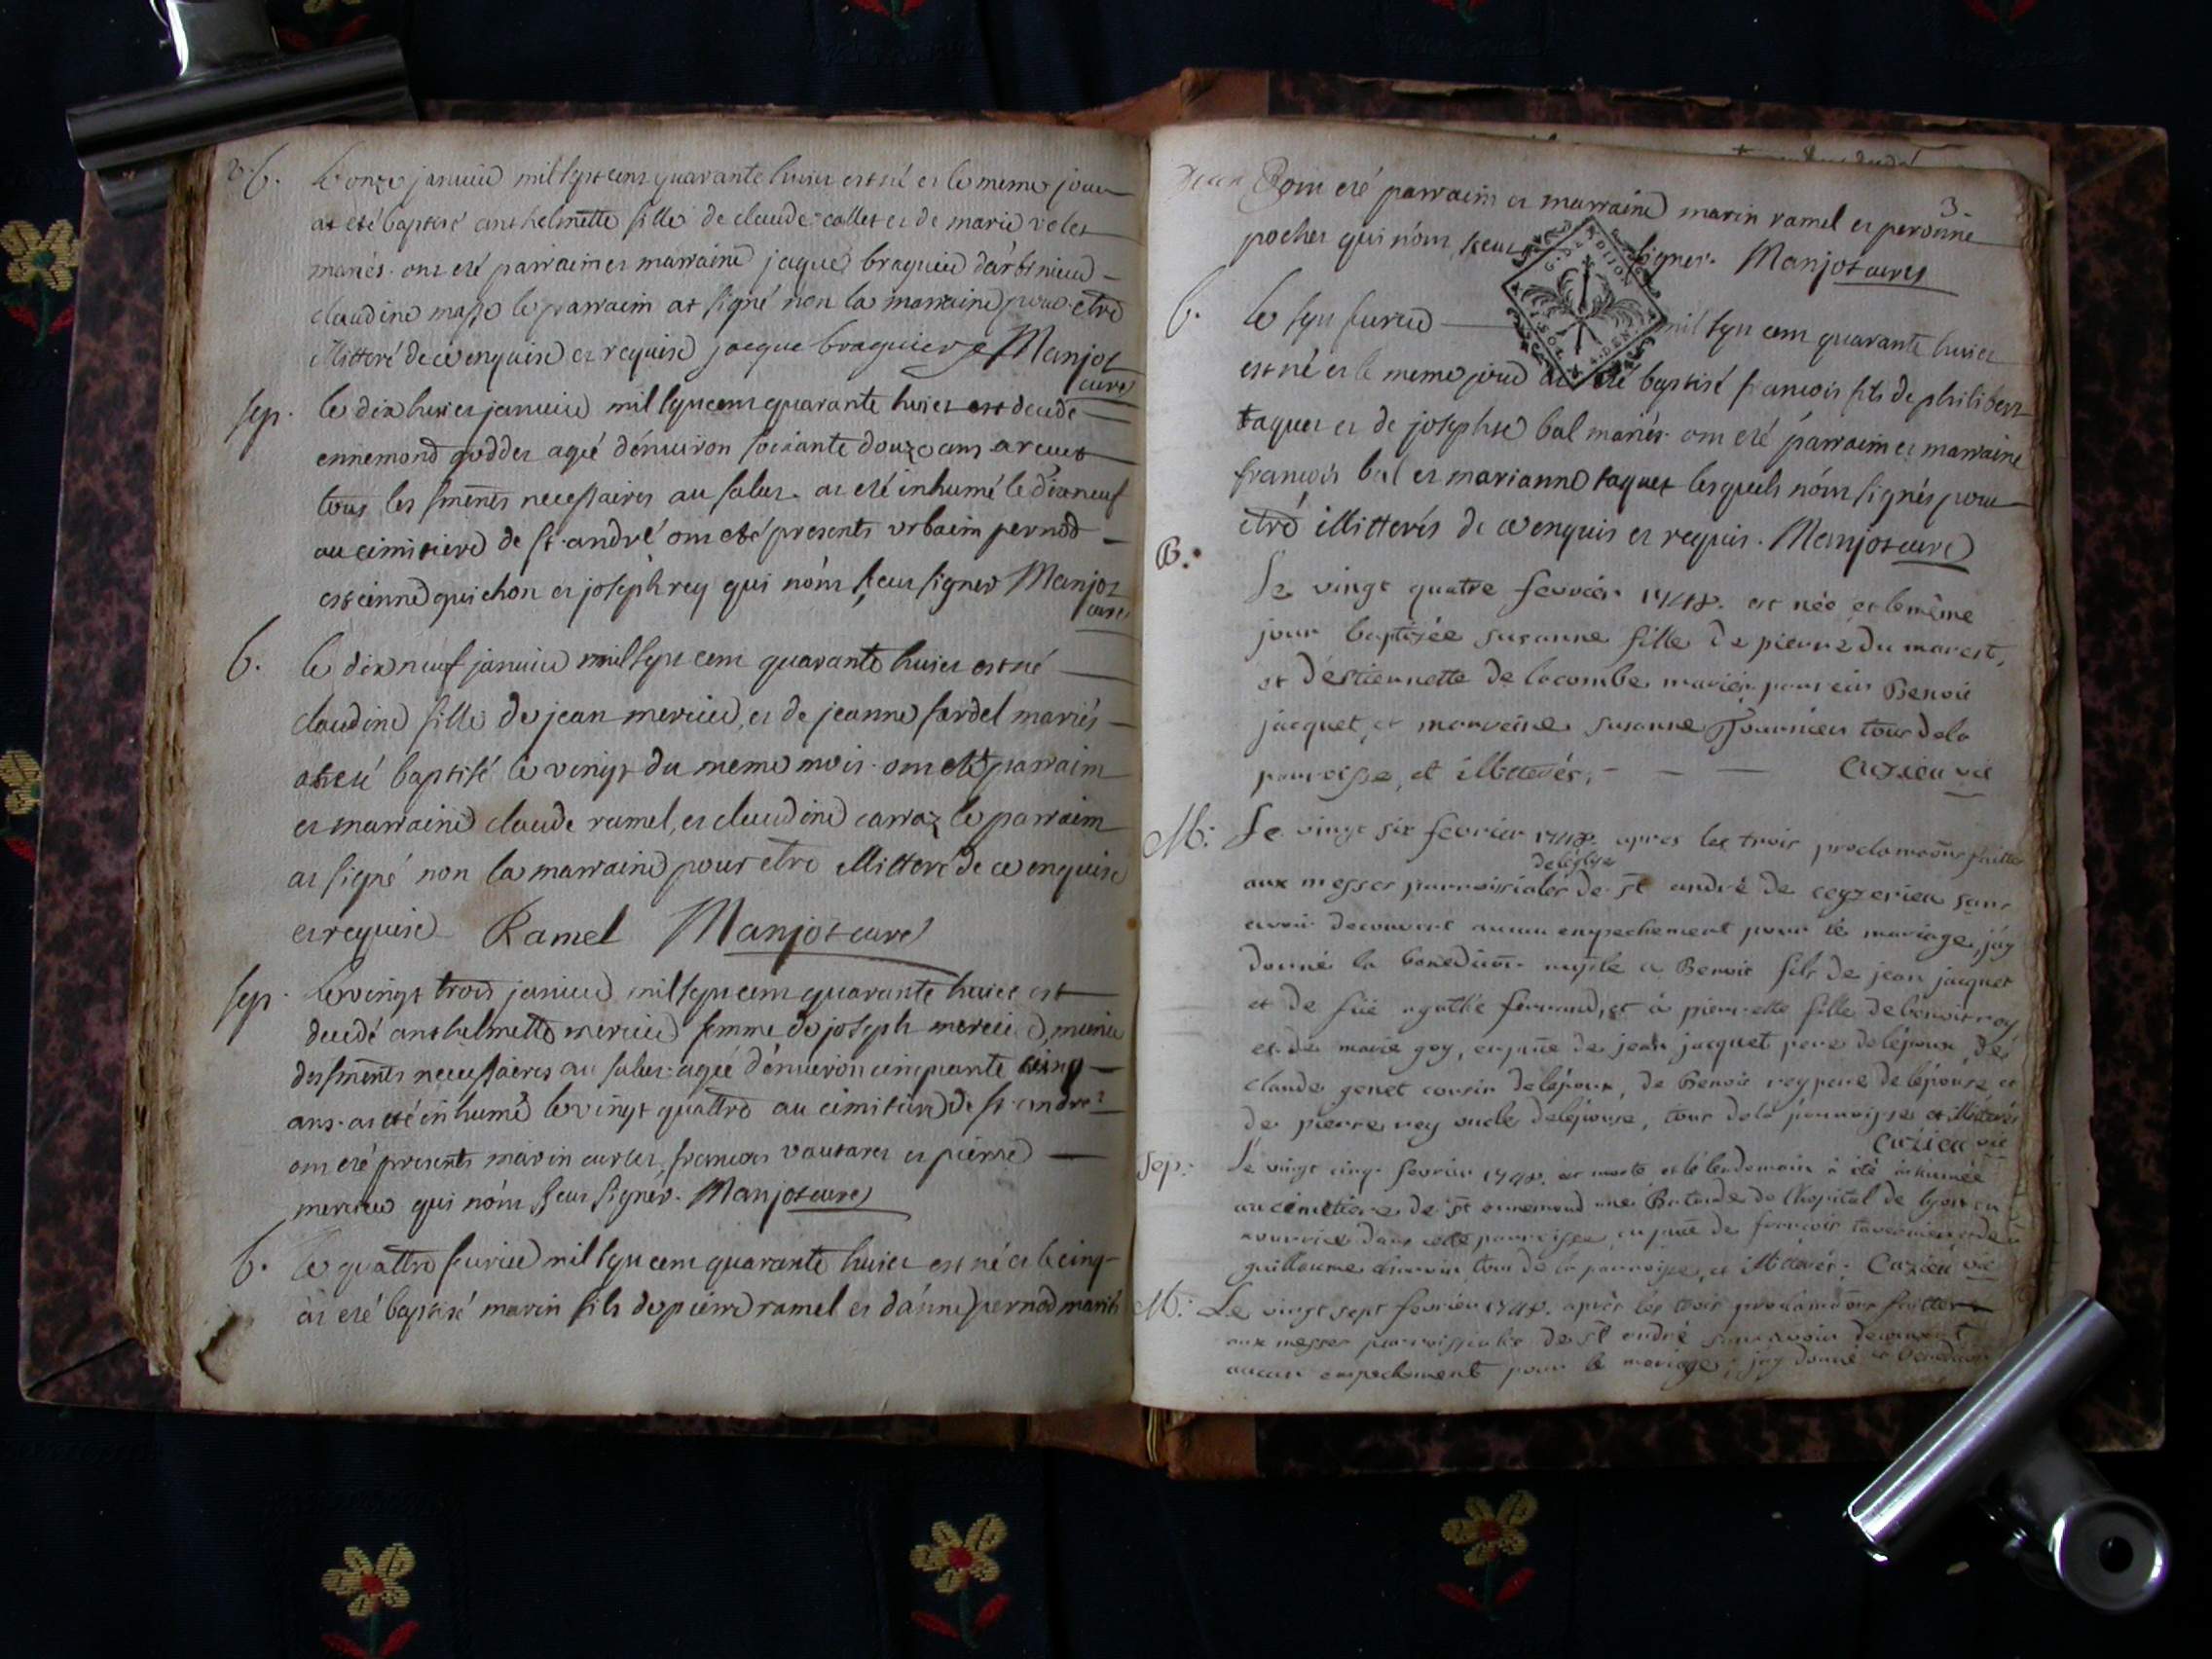 b. le onze janvier mil sept cent quarante huict est né et le meme jour
at eté baptisé anthelmette fille de claude callet et de marie velet
mariés. ont eté parrain et marraine jaque braquier d'arbinieu
claudine masse le parrain at signé non la marraine pour etre
illitteré de ce enquise et requise jacque braguier Manjot
curé
sep. le dix huict janvier mil sept cent quarante huict est decedé
ennemond goddet agé d'environ soixante douze ans a receu
tous les sments necessaires au salut. at eté inhumé le dix neuf
au cimitiere de st. andré ont eté presents urbain pernod
estienne guichon et joseph rey qui n'ont sceu signer Manjot
curé
b. le dix neuf janvier mil sept cent quarante huict est né
claudine fille de jean mercier, et de jeanne fardel mariés
at eté baptisé le vingt du meme mois. ont eté parrain
et marraine claude ramel, et claudine carraz le parrain
at signé non la marraine pour etre illitteré de ce enquise
et requise Ramel Manjot curé
sep. le vingt trois janvier mil sept cent quarante huict est
decedé anthelmette mercier femme de joseph mercier, munie
des sments necessaires au salut. agée d'environ cinquante cinq
ans. at eté inhumé le vingt quattre au cimitiere de st. andré
ont eté presents marin curtet, francois vautaret et pierre
mercier qui n'ont sceu signer. Manjot curé
b. le quattre fevrier mil sept cent quarante huict est né et le cinq
at eté baptisé marin fils de pierre ramel et d'anne pernod mariés
3
ont eté parrain et marraine marin ramel et peronne
pochet qui n'ont sceu signer. Manjot curé
G. D. DIJON
b. le sept fevrier mil sept cent quarante huict
est né et le meme jour at eté baptisé francois fils de philibert
taquet et de josephte bal mariés. ont eté parrain et marraine
francois bal et marianne taquet lesquels n'ont signés pour
etre illitterés de ce enquis et requis. Manjot curé
B. Le vingt quatre fevrier 1748. est née et le même
jour baptisée susanne fille de pierre du marest,
et d'estiennette de lacombe mariés parrein Benoit
jacquet, et marreine susanne Fournier tous de la
parroisse, et illitterés, Cuzieu vic
M. Le vingt six fevrier 1748. apres les trois proclamaons faittes
de l'église
aux messes parroissiales de st andré de ceyzerieu sans
avoir decouvert aucun empechement pour le mariage, j'ay
donné la benediction nuptle a Benoit fils de jean jacquet
et de füe agathe ferrand, et à pierrette fille de benoit rey
et de marie goy, en pnce de jean jacquet pere de l'époux, de
claude genet cousin de l'époux, de Benoit rey pere de l'épouse et
de pierre rey oncle de l'épouse, tous de la parroisse et illitterés
Cuzieu vic
Sep. Le vingt cinq fevrier 1748. est morte et le lendemain à été inhumée
au cimetiere de st ennemond une Batarde de l'hopital de lyon en
nourrice dans cette parroisse, en pnce de francois tavernier et de
guillaume tous de la parroisse, et illitterés. Cuzieu vic
M. Le vingt sept fevrier 1748. après les trois proclamaons faittes
aux messes parroissiales de st andré sans avoir decouvert
aucun empechement pour le mariage, j'ay donné la benediction